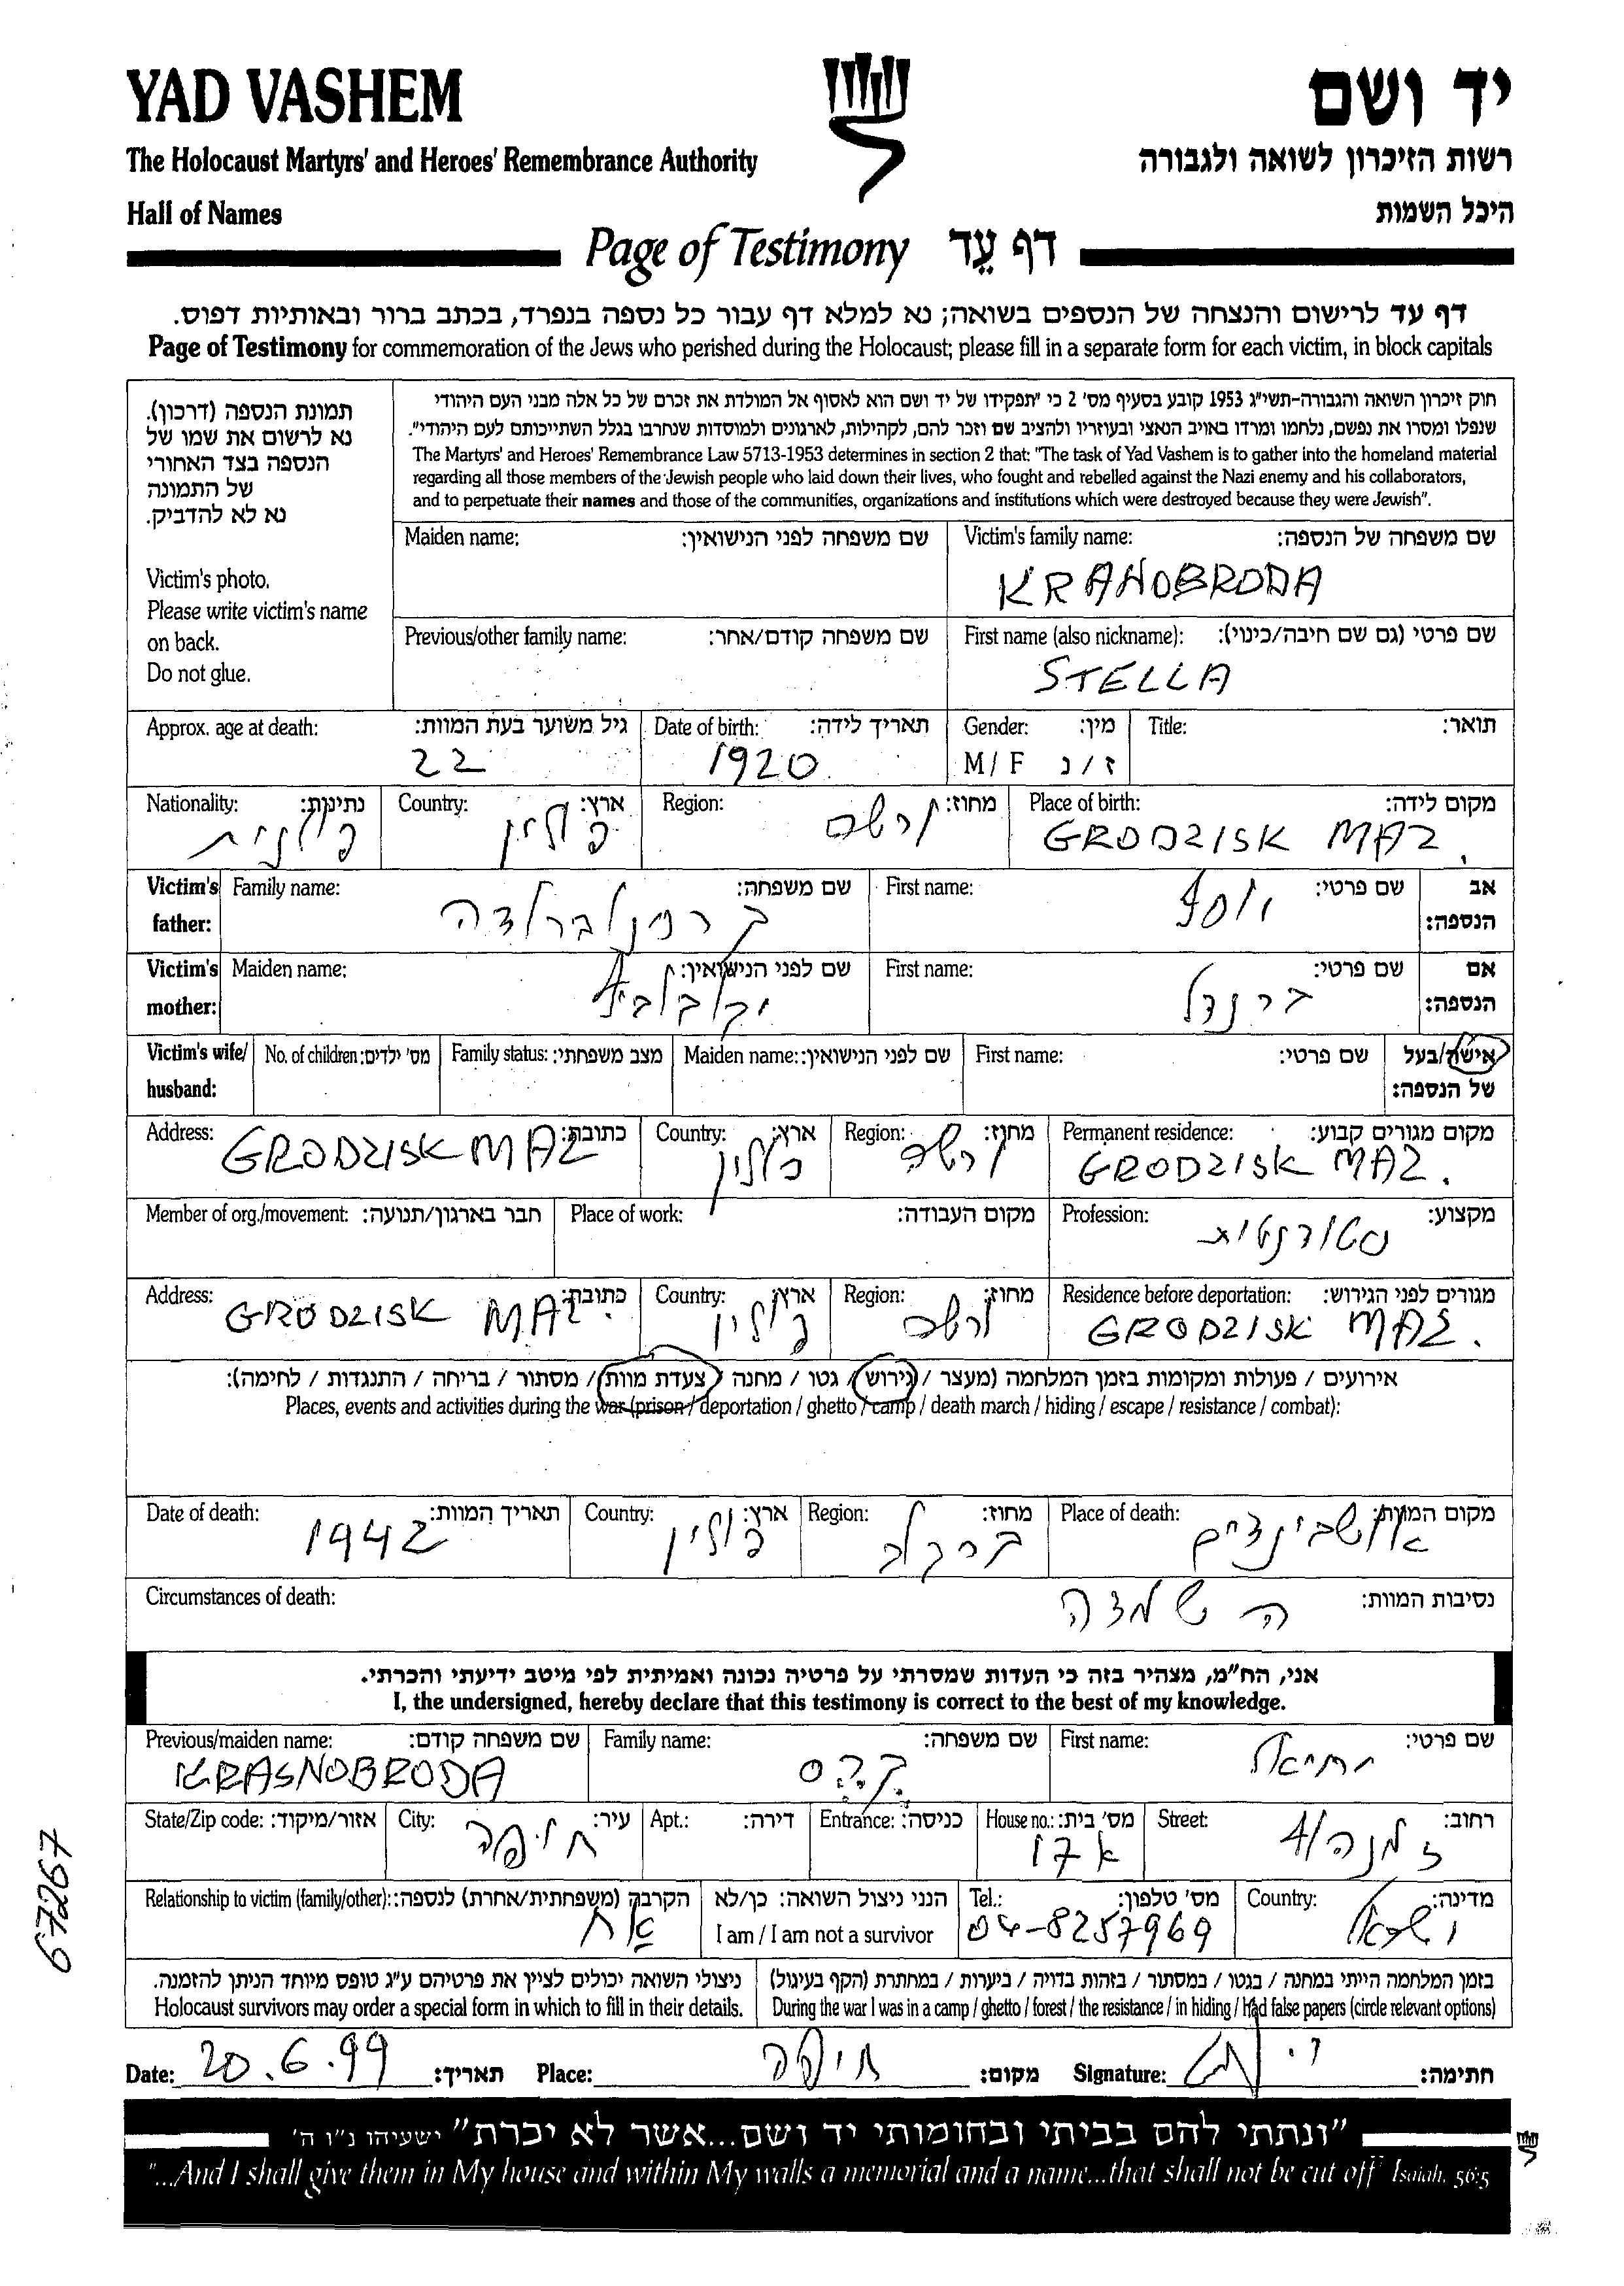 YAD VASHEM
יד ושם
The Holocaust Martyrs' and Heroes' Remembrance Authority
רשות הזיכרון לשואה ולגבורה
Hall of Names
היכל השמות
Page of Testimony דף עֵד
דף עד לרישום והנצחה של הנספים בשואה; נא למלא דף עבור כל נספה בנפרד, בכתב ברור ובאותיות דפוס.
Page of Testimony for commemoration of the Jews who perished during the Holocaust; please fill in a separate form for each victim, in block capitals
תמונת הנספה (דרכון).
נא לרשום את שמו של
הנספה בצד האחורי
של התמונה
נא לא להדביק.
Victim's photo.
Please write victim's name
on back.
Do not glue.
חוק זיכרון השואה והגבורה-תשי"ג 1953 קובע בסעיף מס' 2 כי "תפקידו של יד ושם הוא לאסוף אל המולדת את זכרם של כל אלה מבני העם היהודי
שנפלו ומסרו את נפשם, נלחמו ומרדו באויב הנאצי ובעוזריו ולהציב שם וזכר להם, לקהילות, לארגונים ולמוסדות שנחרבו בגלל השתייכותם לעם היהודי".
The Martyrs' and Heroes' Remembrance Law 5713-1953 determines in section 2 that: "The task of Yad Vashem is to gather into the homeland material
regarding all those members of the Jewish people who laid down their lives, who fought and rebelled against the Nazi enemy and his collaborators,
and to perpetuate their names and those of the communities, organizations and institutions which were destroyed because they were Jewish".
Maiden name: שם משפחה לפני הנישואין:
Victim's family name: שם משפחה של הנספה:
KRANOBRODA
Previous/other family name: שם משפחה קודם/אחר:
First name (also nickname): שם פרטי (גם שם חיבה/כינוי):
STELLA
Approx. age at death: גיל משוער בעת המוות:
22
Date of birth: תאריך לידה:
1920
Gender: מין:
M / F ז / נ
Title: תואר:
Nationality: נתינות:
פולנית
Country: ארץ:
פולין
Region: מחוז:
ורשה
Place of birth: מקום לידה:
GRODZISK MAZ.
Victim's father: Family name: שם משפחה:
First name: שם פרטי:
יוסף
אב הנספה:
Victim's mother: Maiden name: שם לפני הנישואין:
First name: שם פרטי:
ברנדל
אם הנספה:
Victim's wife/ husband: No. of children: מס' ילדים: Family status: מצב משפחתי: Maiden name: שם לפני הנישואין: First name: שם פרטי: אישה/בעל של הנספה:
Address: כתובת:
GRODZISK MAZ
Country: ארץ:
פולין
Region: מחוז:
ורשה
Permanent residence: מקום מגורים קבוע:
GRODZISK MAZ.
Member of org./movement: חבר בארגון/תנועה:
Place of work: מקום העבודה:
Profession: מקצוע:
סטודנטית
Address: כתובת:
GRODZISK MAZ.
Country: ארץ:
פולין
Region: מחוז:
ורשה
Residence before deportation: מגורים לפני הגירוש:
GRODZISK MAZ.
אירועים / פעולות ומקומות בזמן המלחמה (מעצר / גירוש / גטו / מחנה / צעדת מוות / מסתור / בריחה / התנגדות / לחימה):
Places, events and activities during the war (prison / deportation / ghetto / camp / death march / hiding / escape / resistance / combat):
Date of death: תאריך המוות:
1942
Country: ארץ:
פולין
Region: מחוז:
Place of death: מקום המוות:
Circumstances of death: נסיבות המוות:
השמדה
אני, הח"מ, מצהיר בזה כי העדות שמסרתי על פרטיה נכונה ואמיתית לפי מיטב ידיעתי והכרתי.
I, the undersigned, hereby declare that this testimony is correct to the best of my knowledge.
Previous/maiden name: שם משפחה קודם:
KRASNOBRODA
Family name: שם משפחה:
First name: שם פרטי:
יחיאל
State/Zip code: אזור/מיקוד:
City: עיר:
חיפה
Apt.: דירה:
Entrance: כניסה:
House no.: מס' בית:
17 א
Street: רחוב:
Relationship to victim (family/other): הקרבה (משפחתית/אחרת) לנספה:
אח
הנני ניצול השואה: כן/לא
I am / I am not a survivor
Tel.: מס' טלפון:
04-8257969
Country: מדינה:
ישראל
ניצולי השואה יכולים לציין את פרטיהם ע"ג טופס מיוחד הניתן להזמנה.
Holocaust survivors may order a special form in which to fill in their details.
בזמן המלחמה הייתי במחנה / בגטו / במסתור / בזהות בדויה / ביערות / במחתרת (הקף בעיגול)
During the war I was in a camp / ghetto / forest / the resistance / in hiding / had false papers (circle relevant options)
Date: 20.6.99 תאריך:
Place: חיפה מקום:
Signature: חתימה:
"ונתתי להם בביתי ובחומותי יד ושם...אשר לא יכרת" ישעיהו נ"ו ה'
"...And I shall give them in My house and within My walls a memorial and a name...that shall not be cut off" Isaiah, 56:5
67267